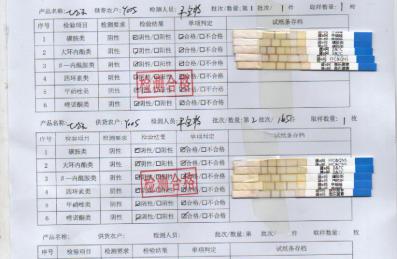 产品名称: 供货农户: YooS 检测人员: 批次/数量:第1批次/ 1 件 取样数量: 1 枚
序号 检验项目 检测要求 检验结果 单项判定 试纸条存档
1 磺胺类 阴性 ☑阴性/□阳性 ☑合格/□不合格
2 大环内酯类 阴性 ☑阴性/□阳性 ☑合格/□不合格
3 β-内酰胺类 阴性 ☑阴性/□阳性 ☑合格/□不合格
4 四环素类 阴性 ☑阴性/□阳性 ☑合格/□不合格
5 甲硝唑类 阴性 阴性/□阳性 合格/□不合格
6 喹诺酮类 阴性 ☑阴性/□阳性 ☑合格/□不合格
检测合格
产品名称: 供货农户: YooS 检测人员: 批次/数量:第 批次/ 件 取样数量: 1 枚
序号 检验项目 检测要求 检验结果 单项判定 试纸条存档
1 磺胺类 阴性 ☑阴性/□阳性 ☑合格/□不合格
2 大环内酯类 阴性 ☑阴性/□阳性 ☑合格/□不合格
3 β-内酰胺类 阴性 ☑阴性/□阳性 ☑合格/□不合格
4 四环素类 阴性 阴性/□阳性 合格/□不合格
5 甲硝唑类 阴性 ☑阴性/□阳性 ☑合格/□不合格
6 喹诺酮类 阴性 ☑阴性/□阳性 ☑合格/□不合格
检测合格
产品名称: 供货农户: 检测人员: 批次/数量:第 批次/ 件 取样数量: 枚
序号 检验项目 检测要求 检验结果 单项判定 试纸条存档